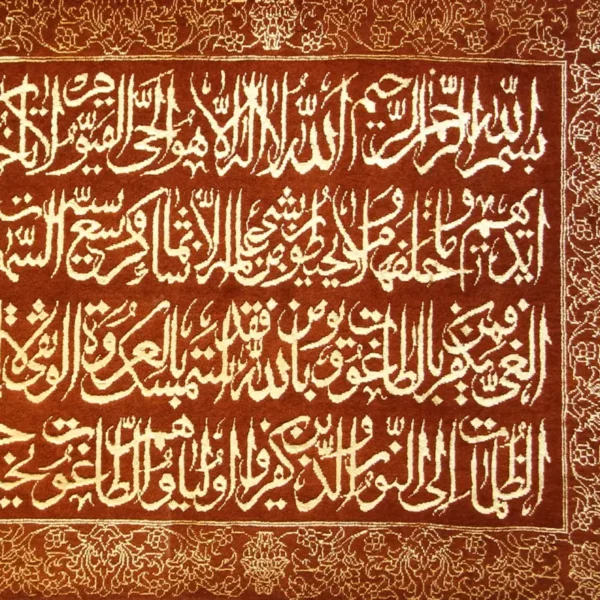 بسم الله الرحمن الرحيم الله لا اله الا هو الحي القيوم لا تأخذ
ايديهم وما خلفهم ولا يحيطون بشيء من علمه الا بما شاء وسع كرسيه السموات
الغي فمن يكفر بالطاغوت ويؤمن بالله فقد استمسك بالعروة الوثقى لا
الظلمات الى النور والذين كفروا اولياؤهم الطاغوت يخرجو